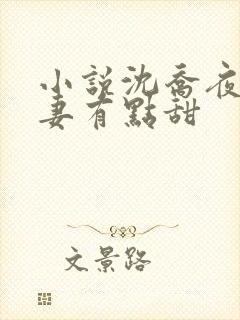 小說沈喬夜
妻有點甜
文景路